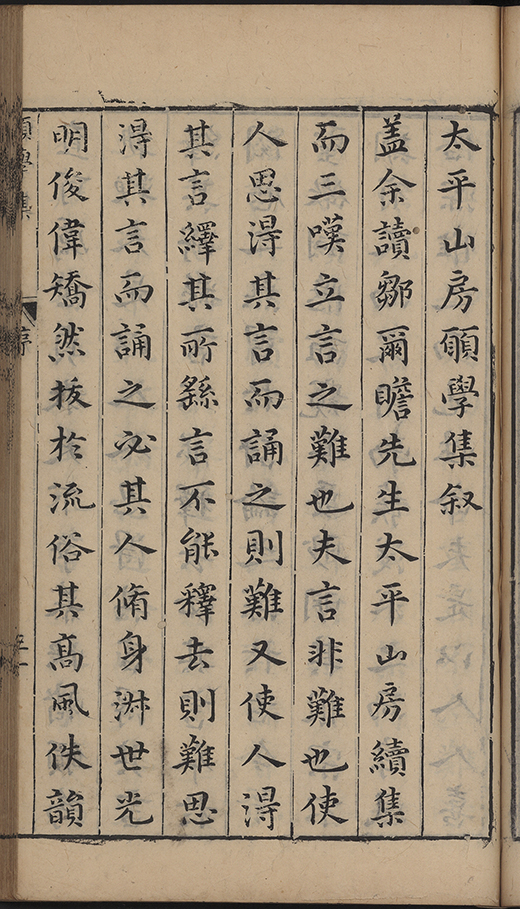 太平山房願學集叙
盖余讀鄒爾瞻先生太平山房續集
而三嘆立言之難也夫言非難也使
人思淂其言而誦之則難又使人淂
其言繹其所繇言不能釋去則難思
淂其言而誦之必其人脩身淋世光
明俊偉矯然拔於流俗其髙風佚韻
學集
序